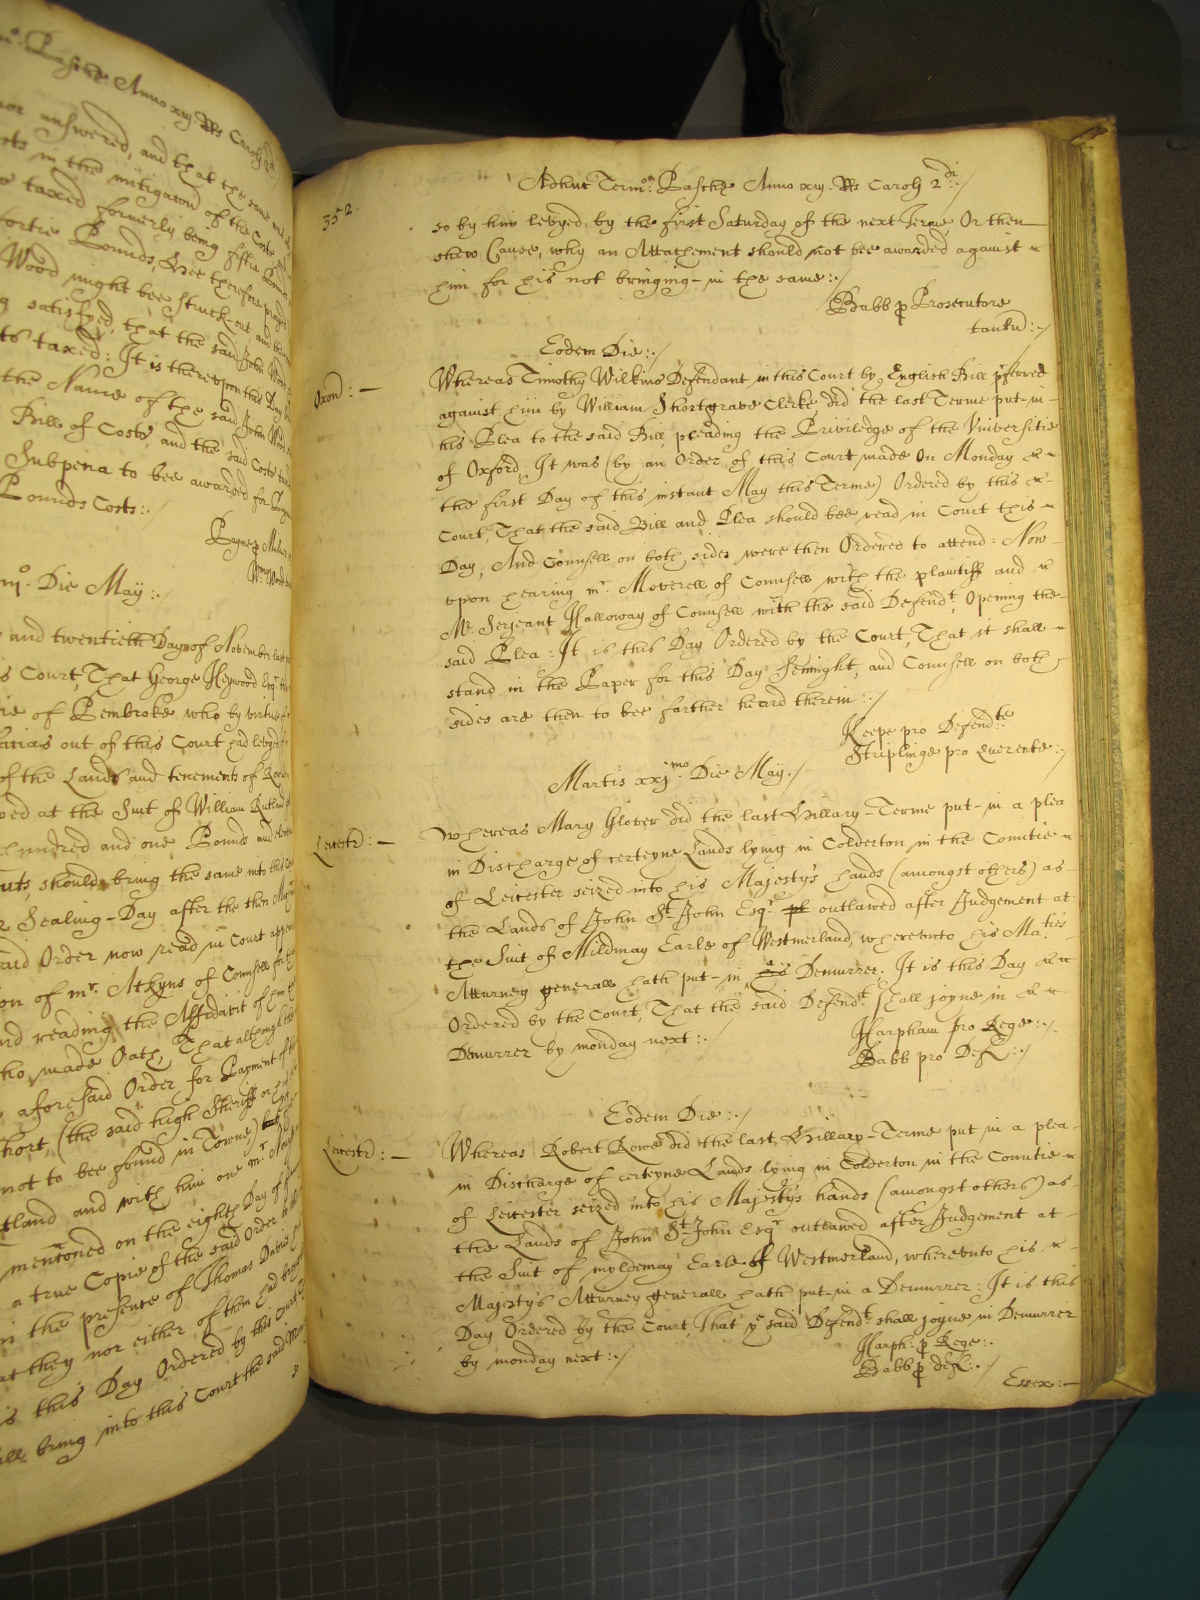 mo. Pasche Anno xiij Rs Caroli 2di
nor answered, and that the same
in the mitigacon of the Costs
taxed formerly being fiftie Pounds
fortie Pounds, Hee therefore prayed
Wood might bee struck-out and
satisfyed, that the said John Wood
taxed: It is thereupon this Day
the Name of the said John Wood
Bill of Costs, and the said Costs
Subpena to bee awarded for
Pounds Costs:./
Payne p
Die May:./
and twentieth Day of November last
Court, That George Heywood Esqr
of Pembroke who by virtue
facias out of this Court had levyed
of the Lands and tenements of
at the Suit of William Rutland
hundred and one Pounds and
should bring the same into this
Sealing-Day after the then
said Order now read in Court
of mr. Atkyns of Counsell for
and reading the Affidavit of
who made Oath, That although
aforesaid Order for Payment of
(the said high Sheriff
not to bee found in Towne)
and with him one mr.
mentoned on the eighth Day of
a true Copie of the said Order
in the presence of Thomas Davis
that they nor either of them had
is this Day Ordered by this Court
bring into this Court the said
so
352.
Adhuc Termo: Pasche Anno xiij Rs Caroli 2di:./
so by him levyed by the first Saturday of the next Terme Or then
shew Cause, why an Attachement should not bee awarded against
him for his not bringing-in the same:./
Babb p Prosecutore
tantu:./
Eodem Die:./
Oxon: —
Whereas Timothy Wilkins Defendant in this Court by English Bill pferred
against him by William Shortgrave Clerke, did the last Terme put-in
his Plea to the said Bill, pleading the Priviledge of the Vniversitie
of Oxford, It was (by an Order of this Court made On Monday
the first Day of this instant May this Terme) Ordered by this
Court, That the said Bill and Plea should bee read in Court this
Day, And Counsell on both sides were then Ordered to attend: Now
vpon hearing mr. Moverell of Counsell with the plaintiff and
Mr. Serjeant Halloway of Counsell with the said Defendt, Opening the
said Plea: It is this Day Ordered by the Court, That it shall
stand in the Paper for this Day Sennight, and Counsell on both
sides are then to bee farther heard therein:./
Keepe pro Defendte
Striplinge pro Querente:./
Martis xxjmo. Die May./
Leicestr: —
Whereas Mary Glover did the last Hillary-Terme put-in a plea
in Discharge of certeyne Lands lying in Colderton in the Countie
of Leicester seized into his Majesty's hands (amongst others) as
the Lands of John St. John Esqr. outlawed after Judgement at
the Suit of Mildmay Earle of Westmerland, wherevnto his Maties
Atturney generall hath put-in a Demurrer: It is this Day
Ordered by the Court, That the said Defendt shall joyne in
Demurrer by monday next:.
Harpham pro Rege:./
Babb pro Def:./
Eodem Die:./
Leicestr: —
Whereas Robert Rowe did the last Hillary-Terme put in a plea
in Discharge of certeyne Lands lying in Colderton in the Countie
of Leicester seized into his Majesty's hands (amongst others) as
the Lands of John St. John Esqr. outlawed after Judgement at
the Suit of myldemay Earle of Westmerland, wherevnto his
Majesty's Atturney generall hath put-in a Demurrer: It is this
Day Ordered by the Court, That ye said Defendt. shall joyne in Demurrer
by monday next:./
Harph: p Rege:.
Babb p def:./
Essex: —